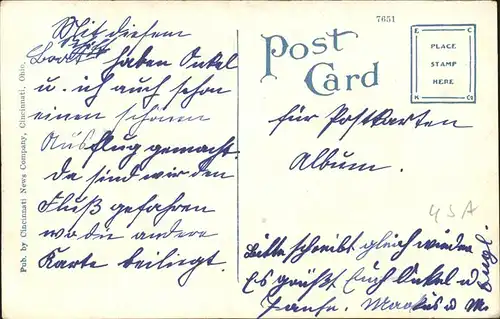 Mit diesem
Boot haben Onkel
u. ich auch schon
einen schönen
Ausflug gemacht.
Da sind wir den
Fluß gefahren
wo die andere
Karte beiliegt.
Pub. by Cincinnati News Company, Cincinnati, Ohio.
7651
Post
Card
E C
PLACE
STAMP
HERE
K Co
für Postkarten
Album.
USA
Bitte schreibt gleich wieder
Es grüßt Euch Onkel u
Tante. u M.
Engl.